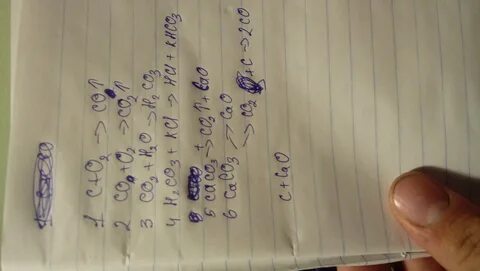 1 C+O₂ → CO↑
2 CO+O₂ → CO₂↑
3 CO₂ + H₂O → H₂CO₃
4 H₂CO₃ + KCl → HCl + KHCO₃
5 CaCO₃ → CO₂↑ + CaO
6 CaCO₃ → CaO
→ CO₂ + C → 2CO
C + CaO